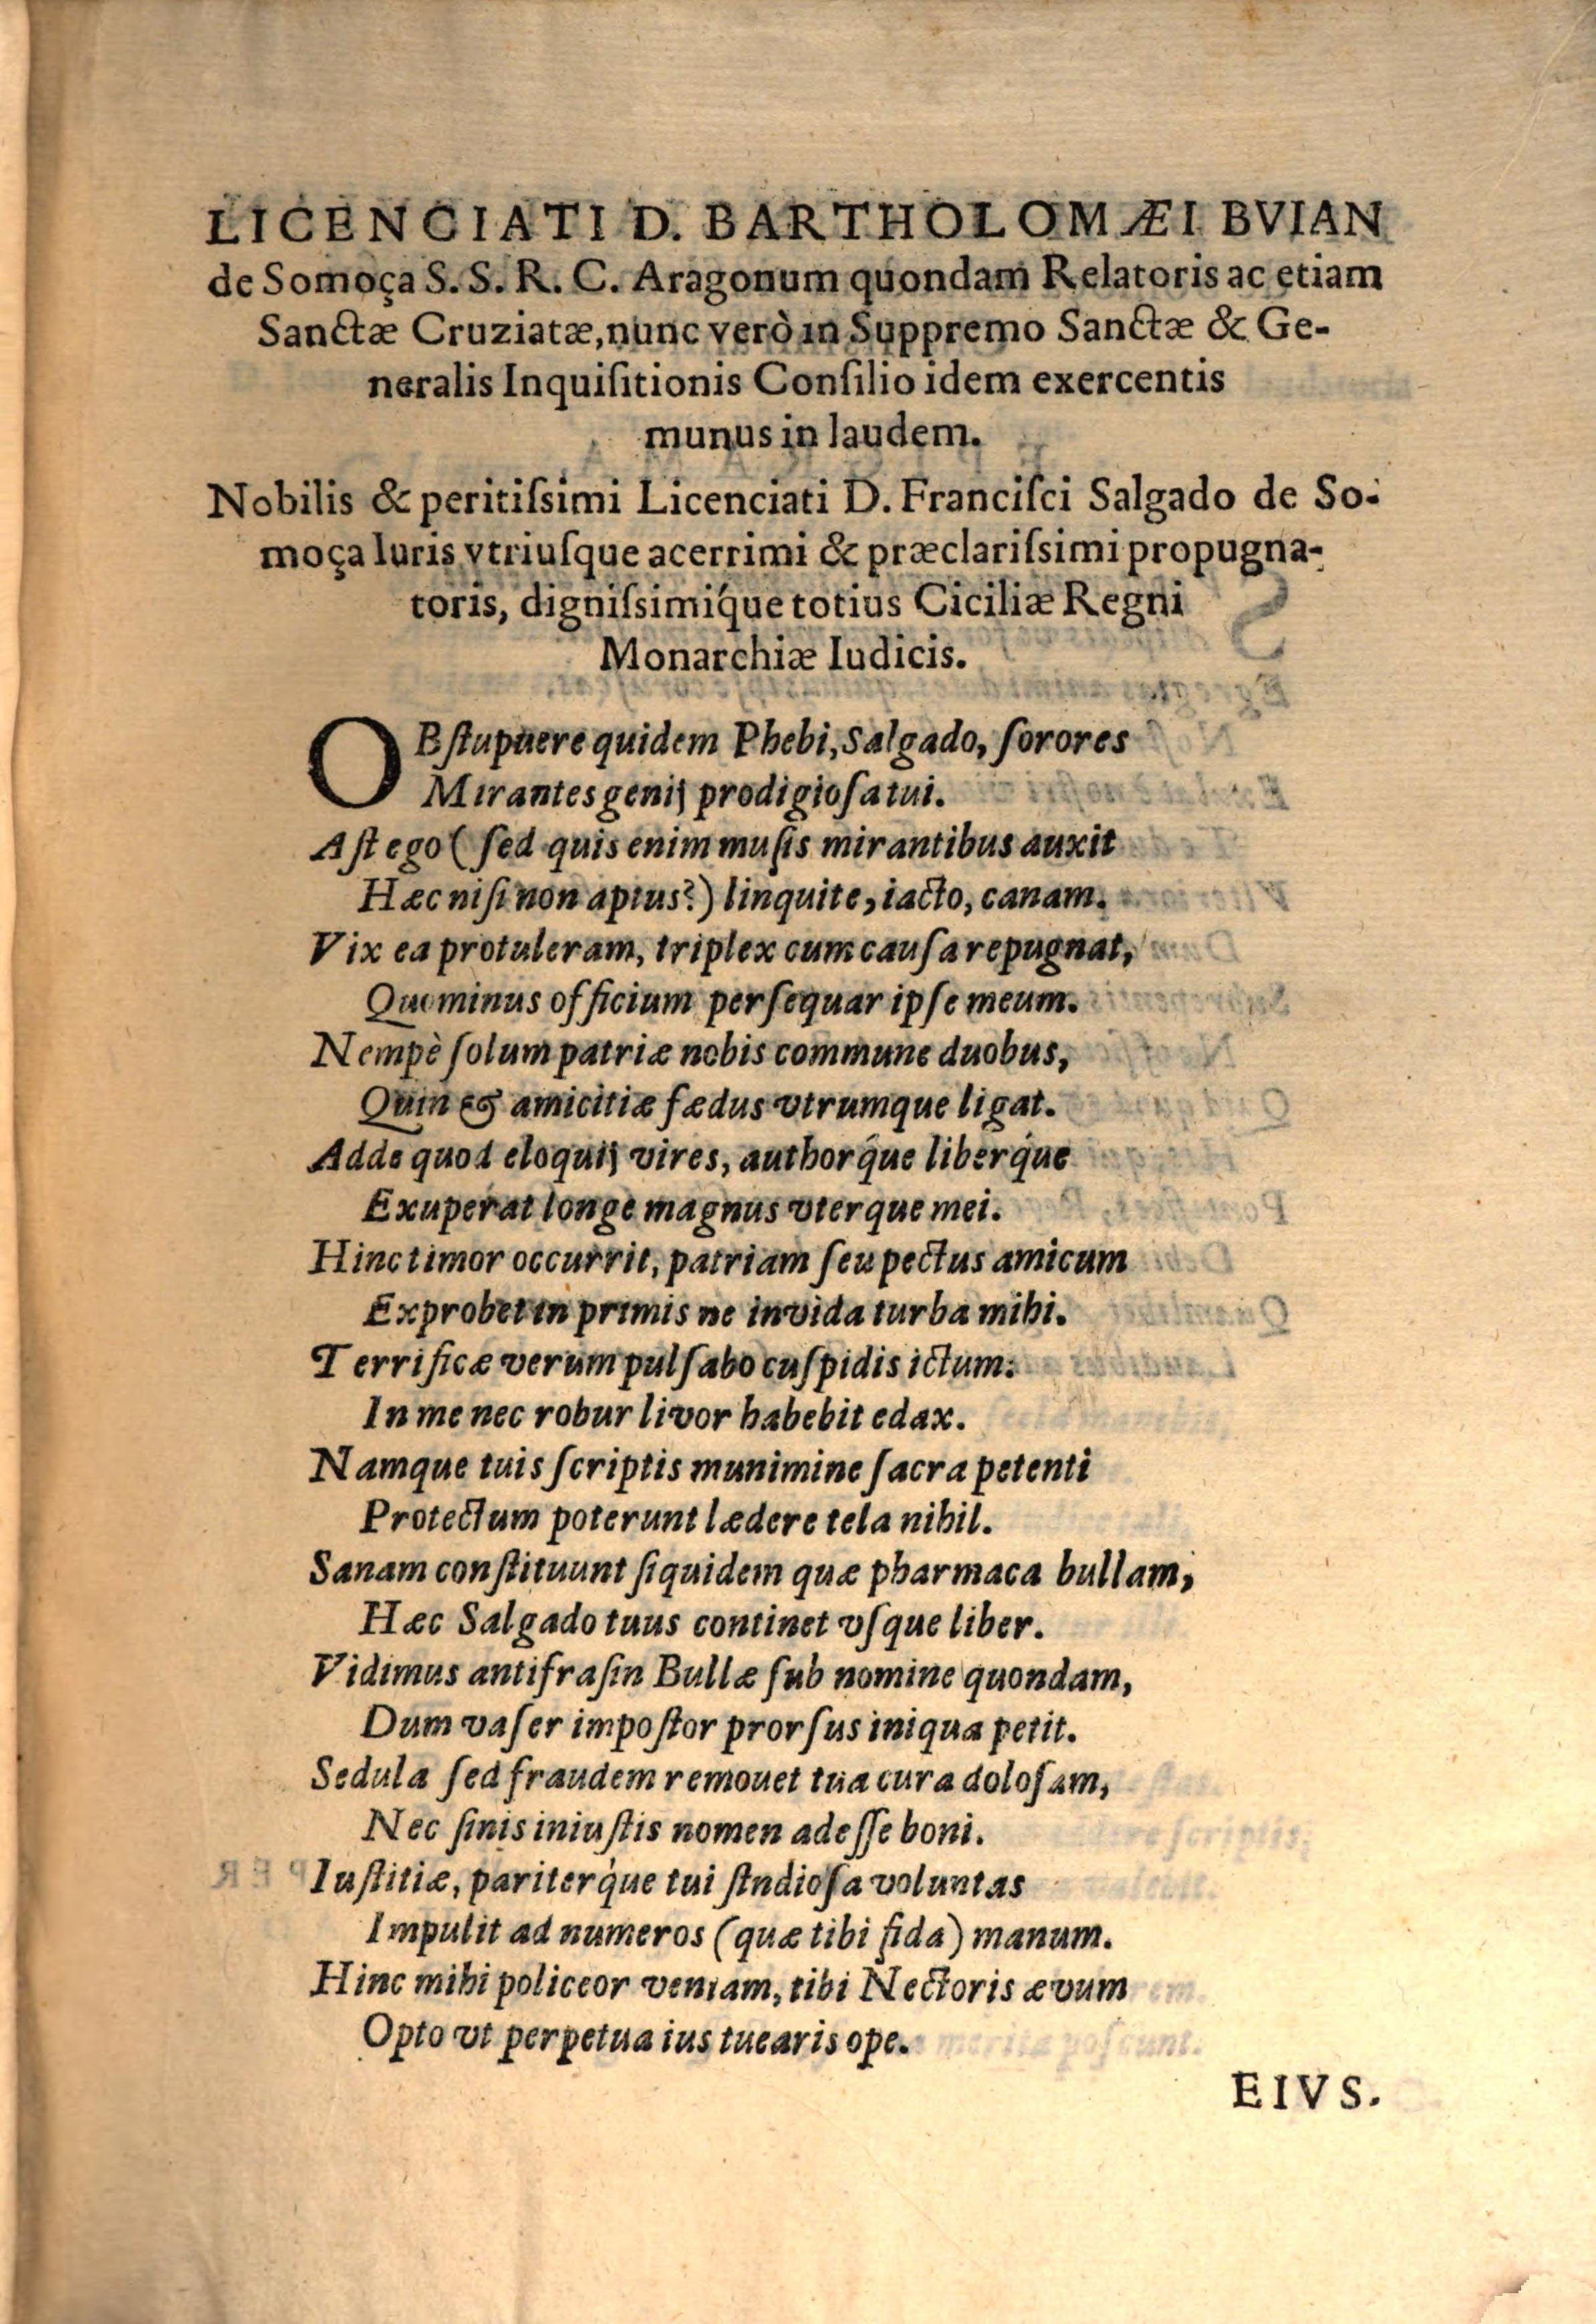 LICENCIATI D. BARTHOLOMÆI BVIAN
de Somoça S. S. R. C. Aragonum quondam Relatoris ac etiam
Sanctæ Cruziatæ, nunc verò in Suppremo Sanctæ & Ge-
neralis Inquiſitionis Conſilio idem exercentis
munus in laudem.
Nobilis & peritiſsimi Licenciati D. Franciſci Salgado de So-
moça Iuris vtriuſque acerrimi & præclariſsimi propugna-
toris, digniſsimiq́ue totius Ciciliæ Regni
Monarchiæ Iudicis.
OBſtupuere quidem Phebi, Salgado, ſorores
Mirantes genij prodigioſa tui.
Aſt ego ( ſed quis enim muſis mirantibus auxit
Hæc niſi non aptus?) linquite, iacto, canam.
Vix ea protuleram, triplex cum cauſa repugnat,
Quominus officium perſequar ipſe meum.
Nempè ſolum patriæ nobis commune duobus,
Quin & amicitiæ fædus vtrumque ligat.
Adde quod eloquij vires, authorq́ue liberq́ue
Exuperat longè magnus vterque mei.
Hinc timor occurrit, patriam ſeu pectus amicum
Exprobet in primis ne invida turba mihi.
Terrificæ verum pulſabo cuſpidis ictum:
In me nec robur livor habebit edax.
Namque tuis ſcriptis munimine ſacra petenti
Protectum poterunt lædere tela nihil.
Sanam conſtituunt ſiquidem quæ pharmaca bullam,
Hæc Salgado tuus continet vſque liber.
Vidimus antifraſin Bullæ ſub nomine quondam,
Dum vafer impoſtor prorſus iniqua petit.
Sedula ſed fraudem remouet tua cura doloſam,
Nec ſinis iniuſtis nomen adeſſe boni.
Iuſtitiæ, pariterq́ue tui ſtndioſa voluntas
Impulit ad numeros (quæ tibi fida) manum.
Hinc mihi policeor veniam, tibi Nectoris ævum
Opto vt perpetua ius tuearis ope.
EIVS.